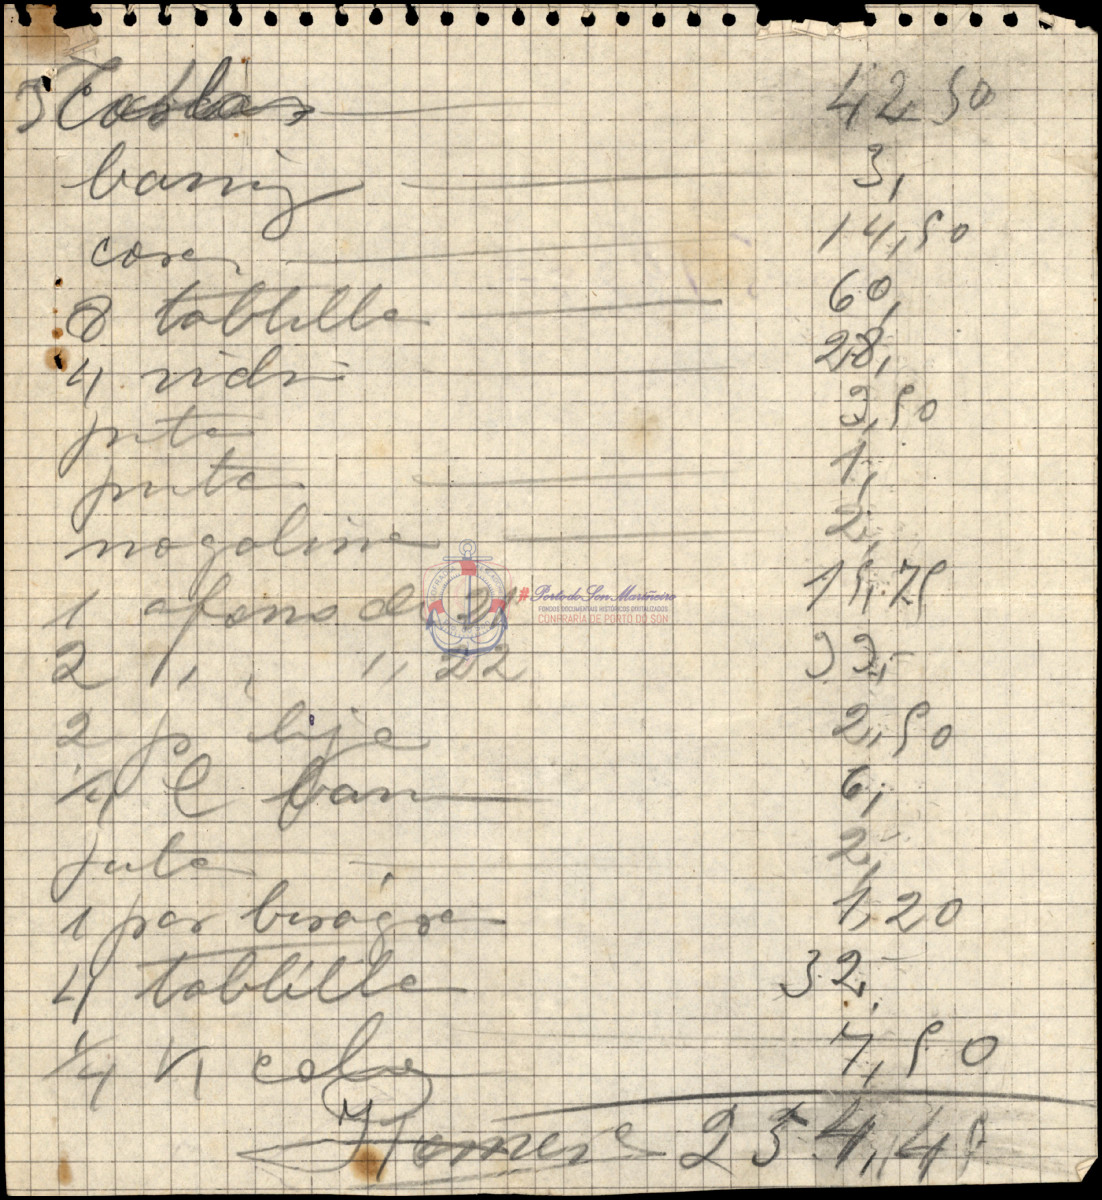 3 Tablas 42,50
barniz 3,
cera 14,50
8 tablilla 60,
4 vidri 28,
punta 3,50
punta 1,
nogalina 2,
1 afono de 21 15,75
2 ,, ,, 22 33,
2 p lija 2,50
1/4 l barn 6,
punta 2,
1 par biságra 1,20
4 tablilla 32,
1/4 K cola 7,50
254,45
#Porto do Son Mariñeiro
FONDOS DOCUMENTAIS HISTÓRICOS DIGITALIZADOS
CONFRARÍA DE PORTO DO SON